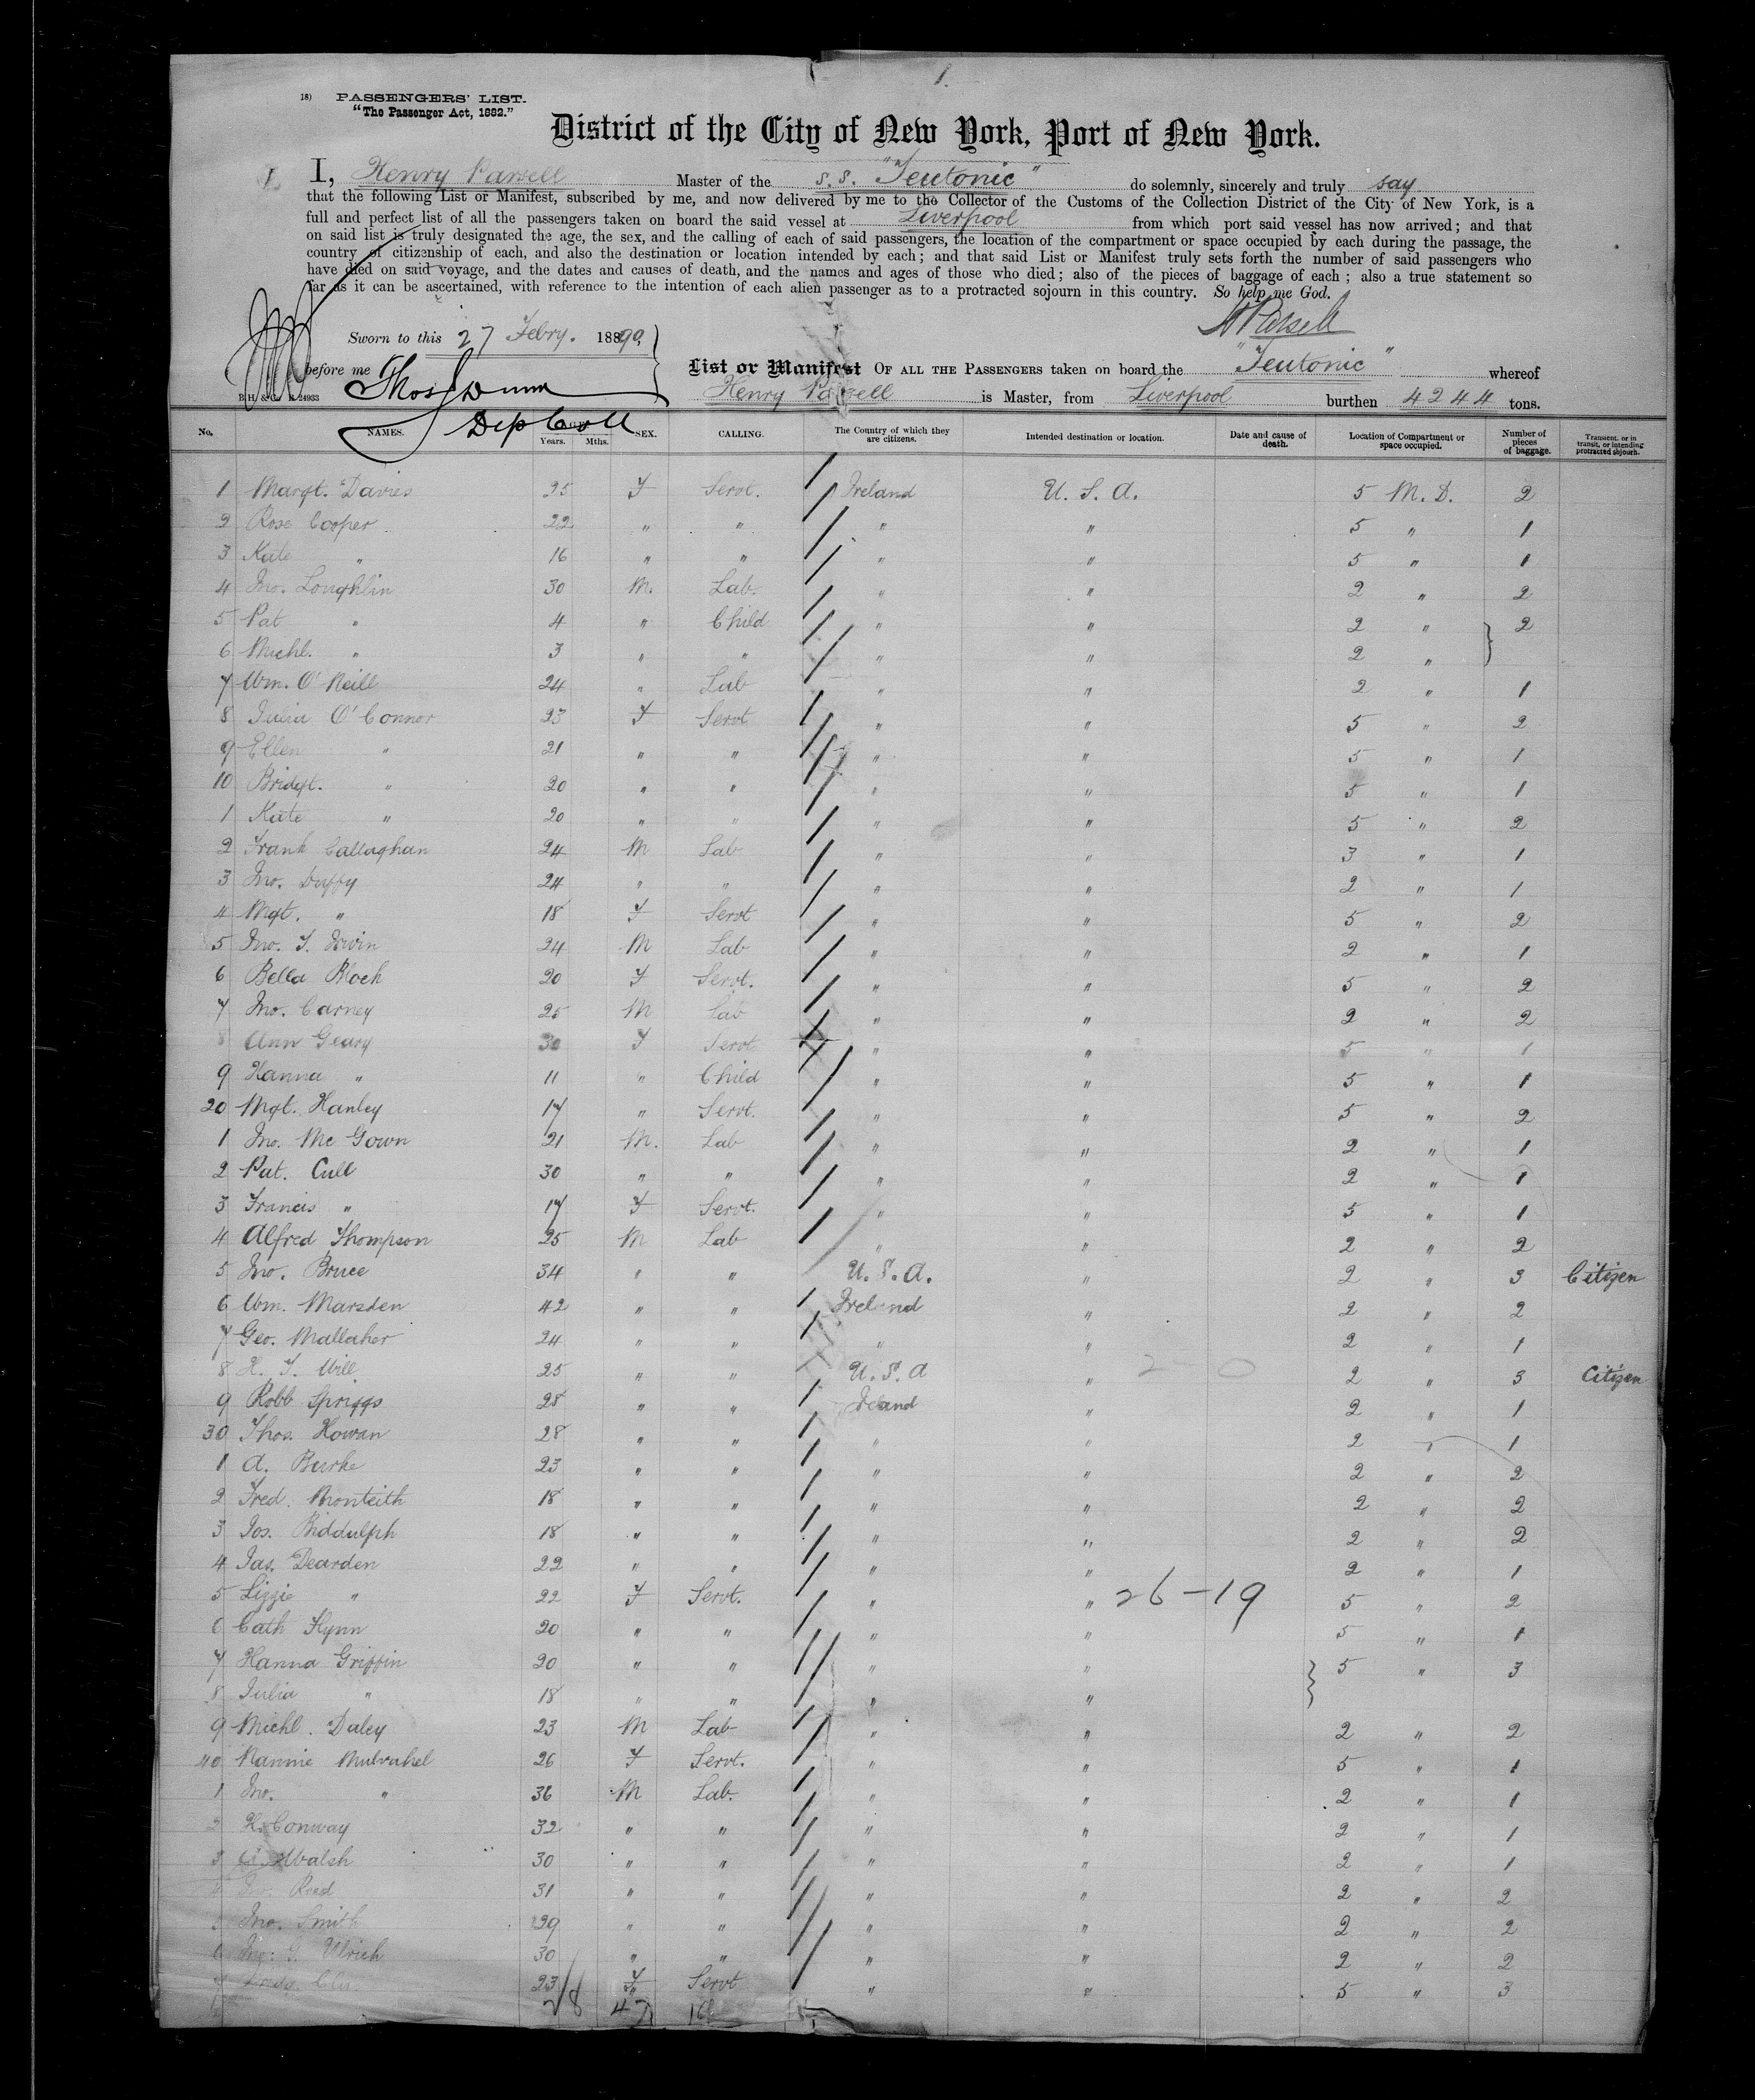 1.
18) PASSENGERS' LIST.
"The Passenger Act, 1882."
District of the City of New York, Port of New York.
I, Henry Parsell Master of the s.s. "Teutonic" do solemnly, sincerely and truly say
that the following List or Manifest, subscribed by me, and now delivered by me to the Collector of the Customs of the Collection District of the City of New York, is a
full and perfect list of all the passengers taken on board the said vessel at Liverpool from which port said vessel has now arrived; and that
on said list is truly designated the age, the sex, and the calling of each of said passengers, the location of the compartment or space occupied by each during the passage, the
country of citizenship of each, and also the destination or location intended by each; and that said List or Manifest truly sets forth the number of said passengers who
have died on said voyage, and the dates and causes of death, and the names and ages of those who died; also of the pieces of baggage of each; also a true statement so
far as it can be ascertained, with reference to the intention of each alien passenger as to a protracted sojourn in this country. So help me God.
H Parsell
Sworn to this 27 Febry. 1890,
before me Thos Dunn
Dep Coll
List or Manifest OF ALL THE PASSENGERS taken on board the "Teutonic" whereof
Henry Parsell is Master, from Liverpool burthen 4244 tons.
No. NAMES. Years. Mths. SEX. CALLING. The Country of which they are citizens. Intended destination or location. Date and cause of death. Location of Compartment or space occupied. Number of pieces of baggage. Transient, or in transit, or intending protracted sojourn.
1 Margt. Davies 25 F Servt. Ireland U. S. A. 5 M. D. 2
2 Rose Cooper 22 " " " " 5 " 1
3 Kate " 16 " " " " 5 " 1
4 Jno. Loughlin 30 M. Lab. " " 2 " 2
5 Pat " 4 " Child " " 2 " 2
6 Michl. " 3 " " " " 2 "
7 Wm. O'Neill 24 " Lab " " 2 " 1
8 Julia O'Connor 23 F Servt " " 5 " 2
9 Ellen " 21 " " " " 5 " 1
10 Bridgt. " 20 " " " " 5 " 1
1 Kate " 20 " " " " 5 " 2
2 Frank Callaghan 24 M Lab " " 3 " 1
3 Jno. Duffy 24 " " " " 2 " 1
4 Mgt. " 18 F Servt " " 5 " 2
5 Jno. J. Irwin 24 M Lab " " 2 " 1
6 Bella Block 20 F Servt. " " 5 " 2
7 Jno. Carney 25 M Lab " " 2 " 2
8 Ann Geary 30 F Servt " " 5 " 1
9 Hanna " 11 " Child " " 5 " 1
20 Mgt. Hanley 17 " Servt. " " 5 " 2
1 Jno. Mc Gown 21 M. Lab " " 2 " 1
2 Pat. Cull 30 " " " " 2 " 1
3 Francis " 17 F Servt. " " 5 " 1
4 Alfred Thompson 25 M Lab " " 2 " 2
5 Jno. Bruce 34 " " U. S. A. " 2 " 3 Citizen
6 Wm. Marsden 42 " " Ireland " 2 " 2
7 Geo. Mallaher 24 " " " " 2 " 1
8 H. J. Will 25 " " U. S. A " 2 " 3 Citizen
9 Robb Spriggs 28 " " Ireland " 2 " 1
30 Thos. Howan 28 " " " " 2 " 1
1 A. Burke 23 " " " " 2 " 2
2 Fred. Monteith 18 " " " " 2 " 2
3 Jos. Biddulph 18 " " " " 2 " 2
4 Jas. Dearden 22 " " " " 2 " 1
5 Lizzie " 22 F Servt. " " 26-19 5 " 2
6 Cath Flynn 20 " " " " 5 " 1
7 Hanna Griffin 20 " " " " 5 " 3
8 Julia " 18 " " " "
9 Michl. Daley 23 M Lab " " 2 " 2
40 Nannie Mulvahel 26 F Servt. " " 5 " 1
1 Jno. " 36 M Lab. " " 2 " 1
2 H. Conway 32 " " " " 2 " 1
3 Walsh 30 " " " " 2 " 1
4 Jno. Reed 31 " " " " 2 " 2
5 Jno. Smith 29 " " " " 2 " 2
6 Jno. G. Ulrich 30 " " " " 2 " 2
7 23 F Servt " " 5 " 3